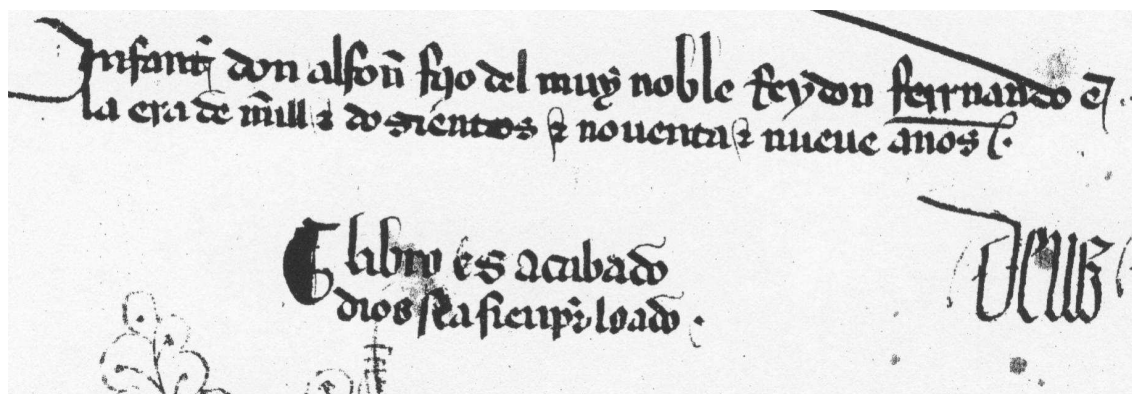 Infant don alfoñ fijo del muy noble Rey don ferrnando e
la era de mill & dosientos & nouenta & nueue anos
libro es acabado
dios sea sienpre loado